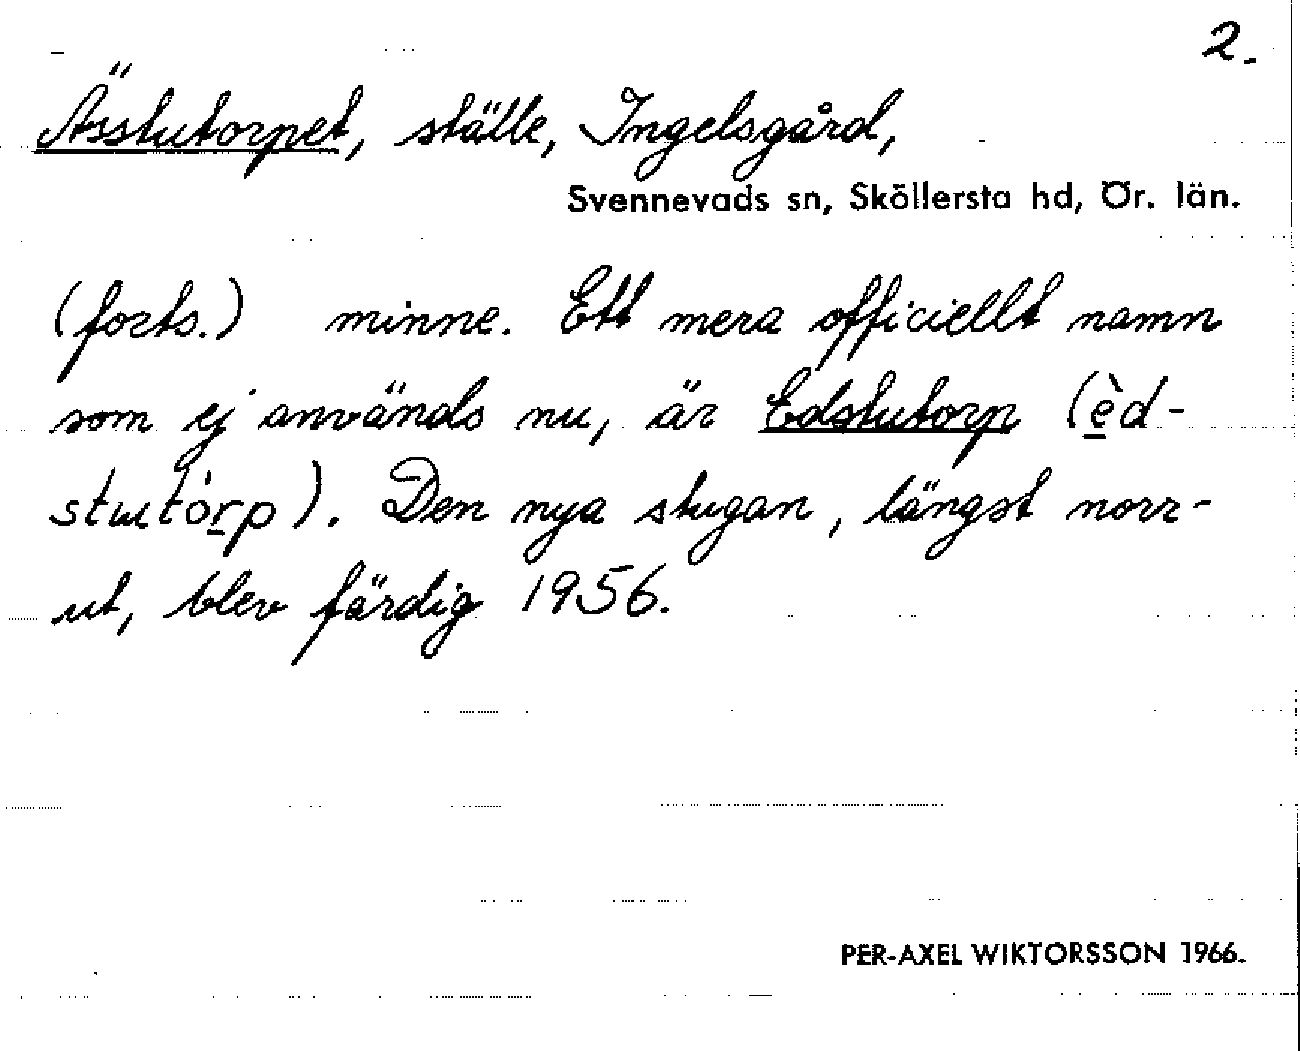 2.
Ässtutorpet, ställe, Ingelsgård,
Svennevads sn, Sköllersta hd, Ör. län.
(forts.) minne. Ett mera officiellt namn
som ej används nu, är Edstutorp (èd-
stutórp). Den nya stugan, längst norr-
ut, blev färdig 1956.
PER-AXEL WIKTORSSON 1966.